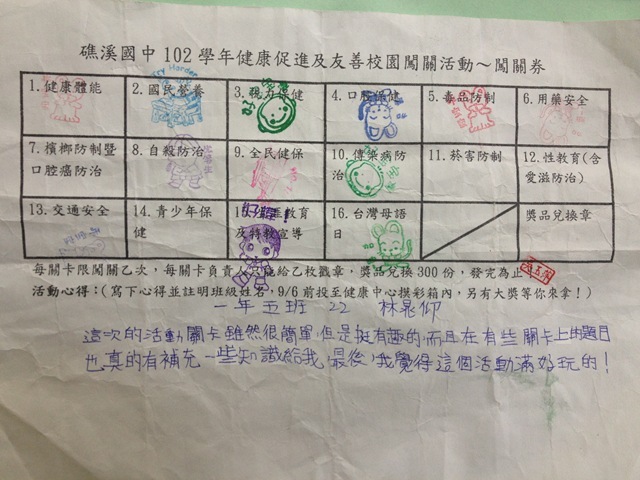 礁溪國中 102 學年健康促進及友善校園闖關活動～闖關券
1.健康體能
2.國民營養
3.視力保健
4.口腔保健
5.毒品防制
6.用藥安全
7.檳榔防制暨口腔癌防治
8.自殺防治
9.全民健保
10.傳染病防治
11.菸害防制
12.性教育(含愛滋防治)
13.交通安全
14.青少年保健
15. 教育及特教宣導
16.台灣母語日
獎品兌換章
每關卡限闖關乙次，每關卡負責人只能給乙枚戳章，獎品兌換300份，發完為止
活動心得：(寫下心得並註明班級姓名，9/6 前投至健康中心摸彩箱內，另有大獎等你來拿！)
一年五班 22 林晁仰
這次的活動關卡雖然很簡單,但是挺有趣的,而且在有些關卡上的題目
也真的有補充一些知識給我,最後,我覺得這個活動滿好玩的!